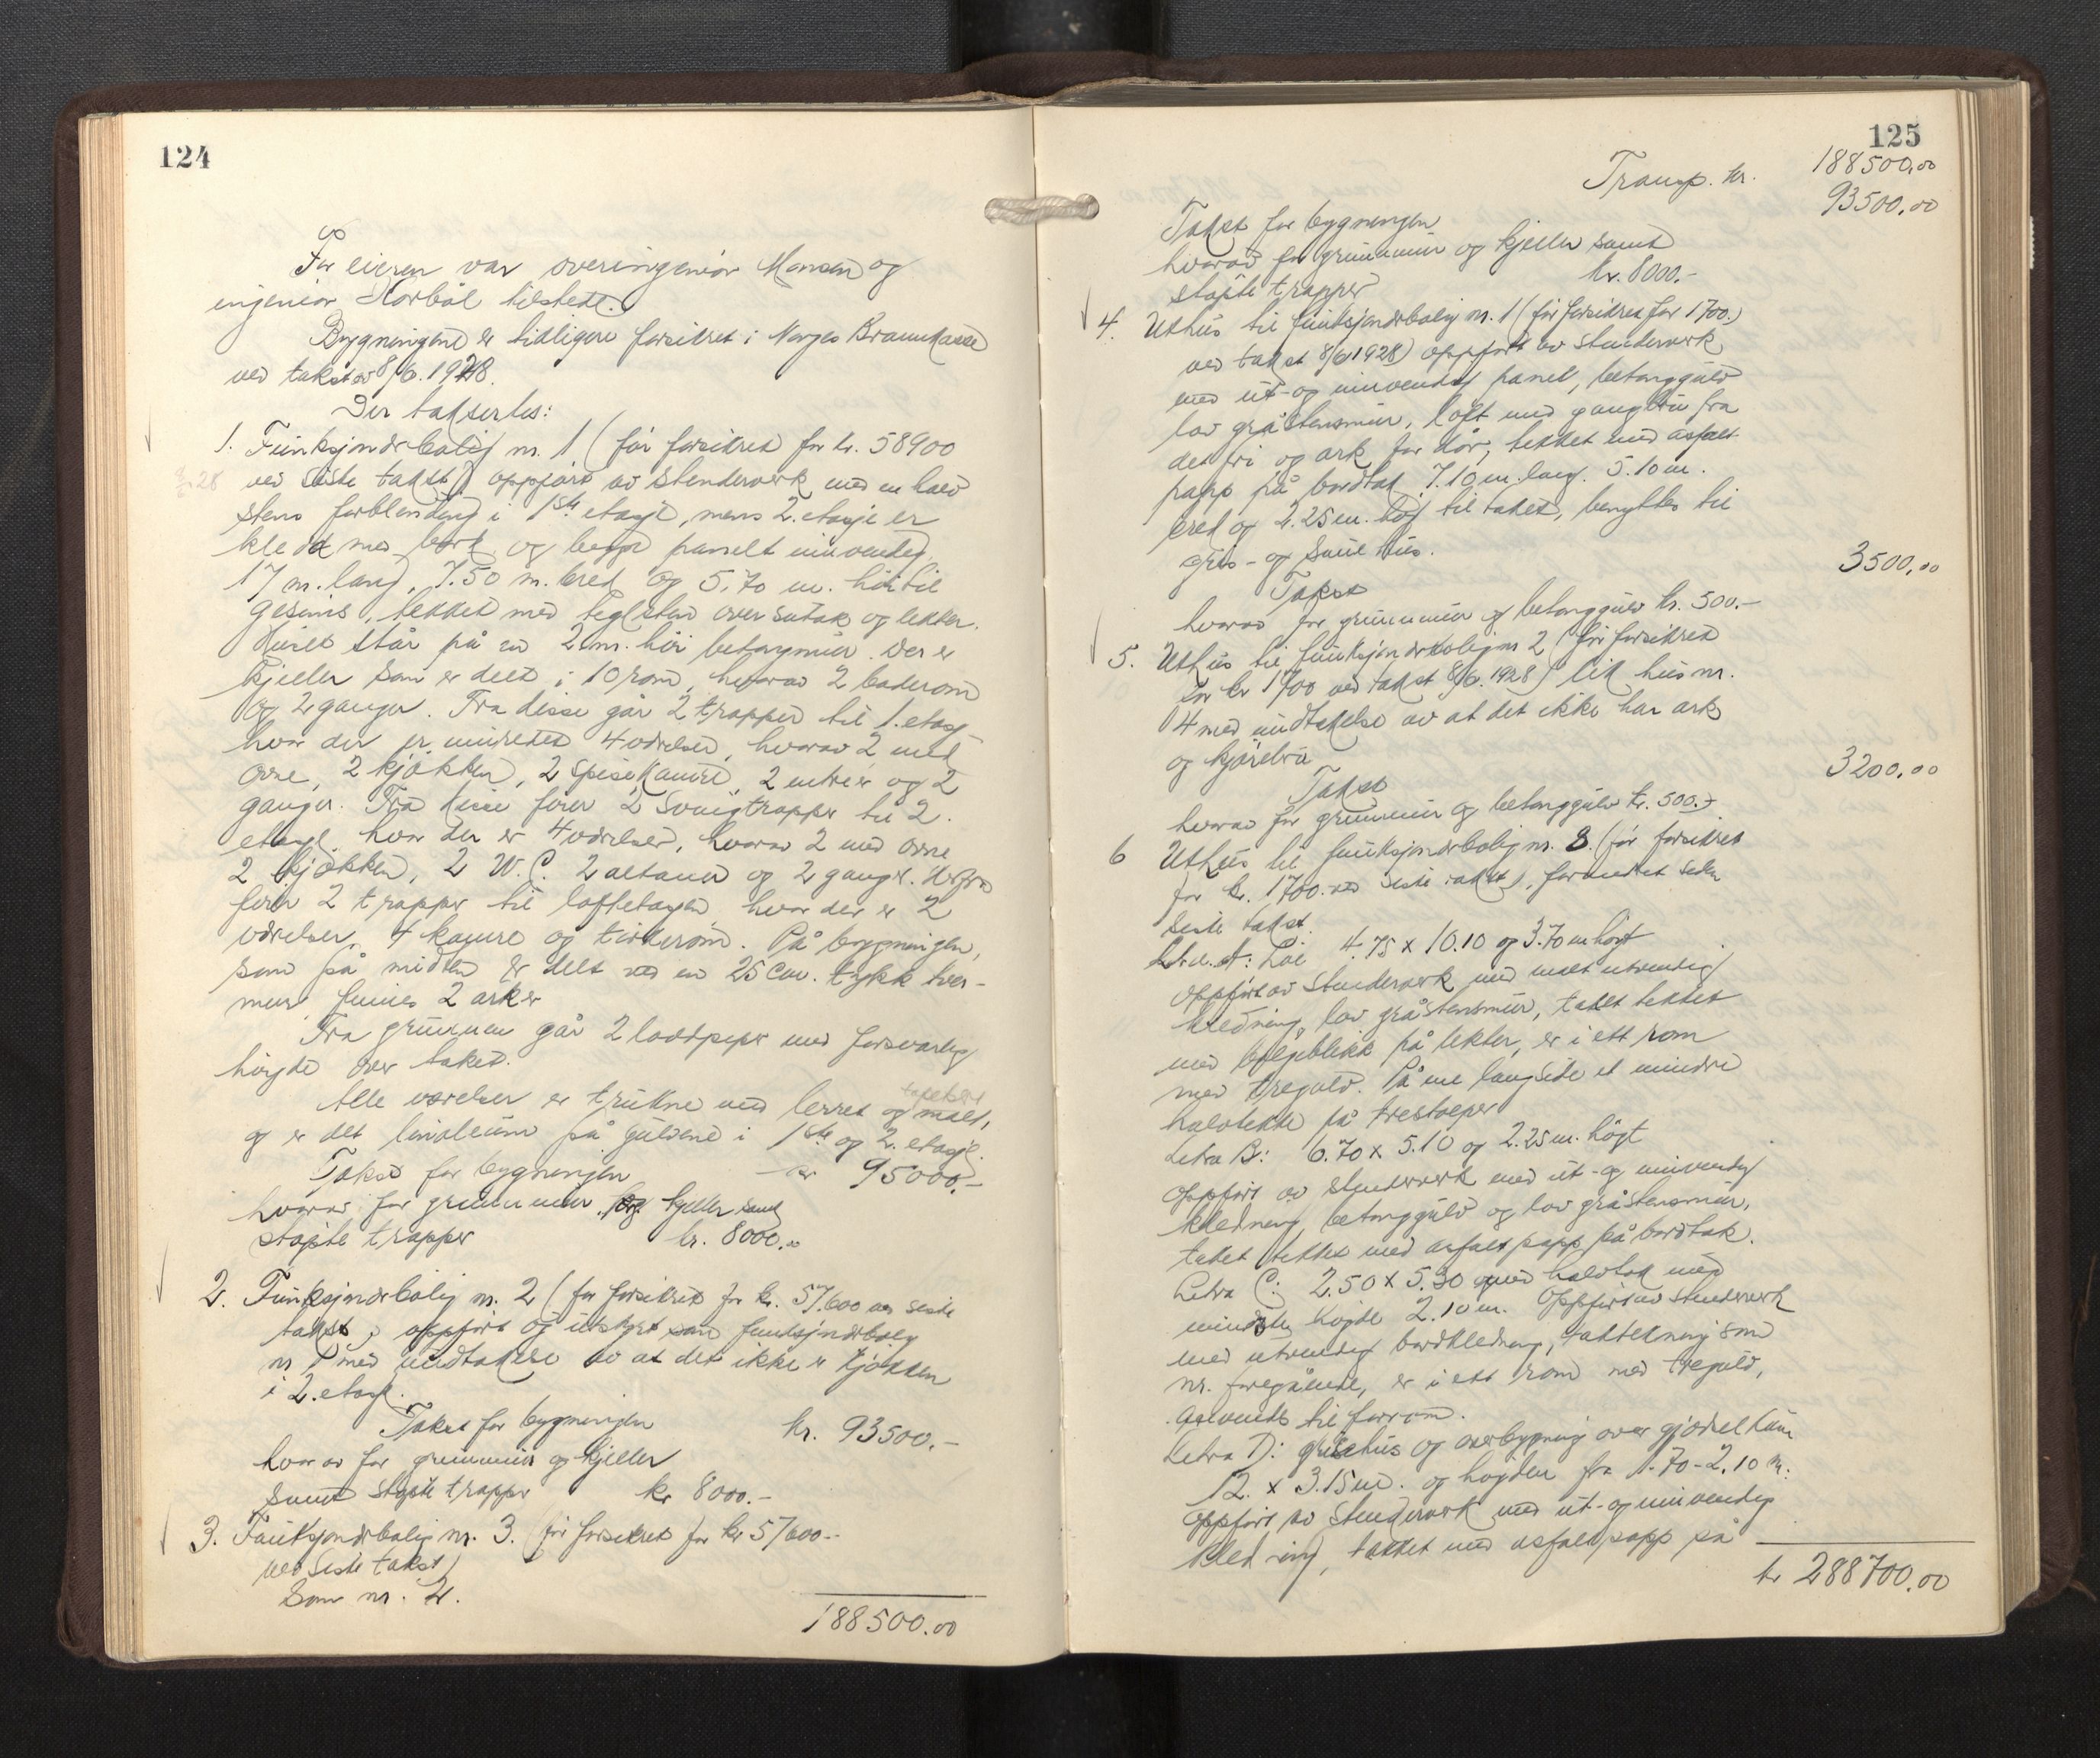 124
For eieren var overingeniör Monsen og
ingeniör Norbål tilstede.
Bygningene er tidligere forsikret i Norges Brannkasse
ved takst av 8/6.1928.
Der taksertes:
1. Funksjonærbolig nr. 1 (før forsikret for kr. 58900
ved siste takst) oppført av stenderverk med en halv
stens forblending i 1ste etasje, mens 2. etasje er
kledd med bord og begge panelt innvendig
17 m. lang, 7.50 m. bred og 5,70 m. höi til
gesims, tekket med teglsten over sutak og lekter.
Huset står på en 2 m. höi betongmur. Der er
kjeller som er delt i 10 rom, hvorav 2 baderom
og 2 ganger. Fra disse går 2 trapper til 1. etasje
hvor der er innredet 4 værelser, hvorav 2 med
ovne, 2 kjøkken, 2 spisekamre, 2 entreer og 2
ganger. Fra disse fører 2 svingtrapper til 2.
etasje hvor der er 4 værelser, hvorav 2 med ovne
2 kjøkken, 2 W.C. 2 altaner og 2 ganger. Herfra
fører 2 trapper til loftetasjen hvor der er 2
værelser, 4 kamre og tørkerom. På bygningen,
som på midten er delt ved en 25 cm. tykk tver-
mur, finnes 2 arker
Fra grunnen går 2 loddpiper med forsvarlig
høyde over taket.
Alle værelser er trukne med lerret og tapetsert malt,
og er det linoleum på gulvene i 1ste og 2. etasje.
Takst for bygningen kr 95000.-
hvorav for grunnmur og kjeller samt
støpte trapper kr. 8000.00
2. Funksjonærbolig nr. 2 (før forsikret for kr. 57.600 ved siste
takst) oppført og utstyrt som funksjonærbolig
nr 1 med undtakelse av at det ikke er kjøkken
i 2. etasje.
Takst for bygningen kr. 93500.-
hvorav for grunnmur og kjeller
samt støpte trapper kr 8000.-
3. Funksjonærbolig nr. 3. (før forsikret for kr 57600.-
ved siste takst)
Som nr. 2.
188500.00
125
Transp. kr. 188500.00
Takst for bygningen 93500.00
hvorav for grunnmur og kjeller samt
støpte trapper kr. 8000.-
4. Uthus til funksjonærbolig nr. 1 (før forsikret for 1700.)
ved takst 8/6 1928) oppført av stenderverk
med ut- og innvendig panel, betonggulv
lav gråstensmur, loft med gangbru fra
det fri og ark for dör, tekket med asfalt-
papp på bordtak 7.10 m. lang. 5.10 m.
bred og 2.25 m. høi til taket, benyttes til
gris- og sauehus.
Takst 3500.00
hvorav for grunnmur og betonggulv kr. 500.-
5. Uthus til funksjonærbolig nr 2 (før forsikret
for kr 1700 ved takst 8/6. 1928) lik hus nr.
4 med undtakelse av at det ikke har ark
og kjørebru
Takst 3200.00
hvorav for grunnmur og betonggulv kr. 500.-
6 Uthus til funksjonærbolig nr. 3. (før forsikret
for kr. 1700. ved siste takst), forandret siden
siste takst.
Litra A: Löe 4.75 x 10.10 og 3.70 m högt
oppført av stenderverk med malt utvendig
kledning, lav gråstensmur, taket tekket
med bølgeblikk på lekter, er i ett rom
med tregulv. På ene langside et mindre
halvtekke på trestolper
Litra B: 6.70 x 5.10 og 2.25 m. högt
oppført av stenderverk med ut- og innvendig
kledning, betonggulv og lav gråstensmur,
taket tekket med asfaltpapp på bordtak.
Litra C: 2.50 x 5.30 med halvtak med
minste høyde 2.10 m. Oppført av stenderverk
med utvendig bordkledning, taktekning som
nr. foregående, er i ett rom med tregulv,
anvendt til forrom.
Litra D: grisehus og overbygning over gjødselkum
12. x 3.15 m. og høyden fra 1.70 - 2.10 m.
oppført av stenderverk med ut- og innvendig
kledning, tekket med asfaltpapp på
kr 288700.00